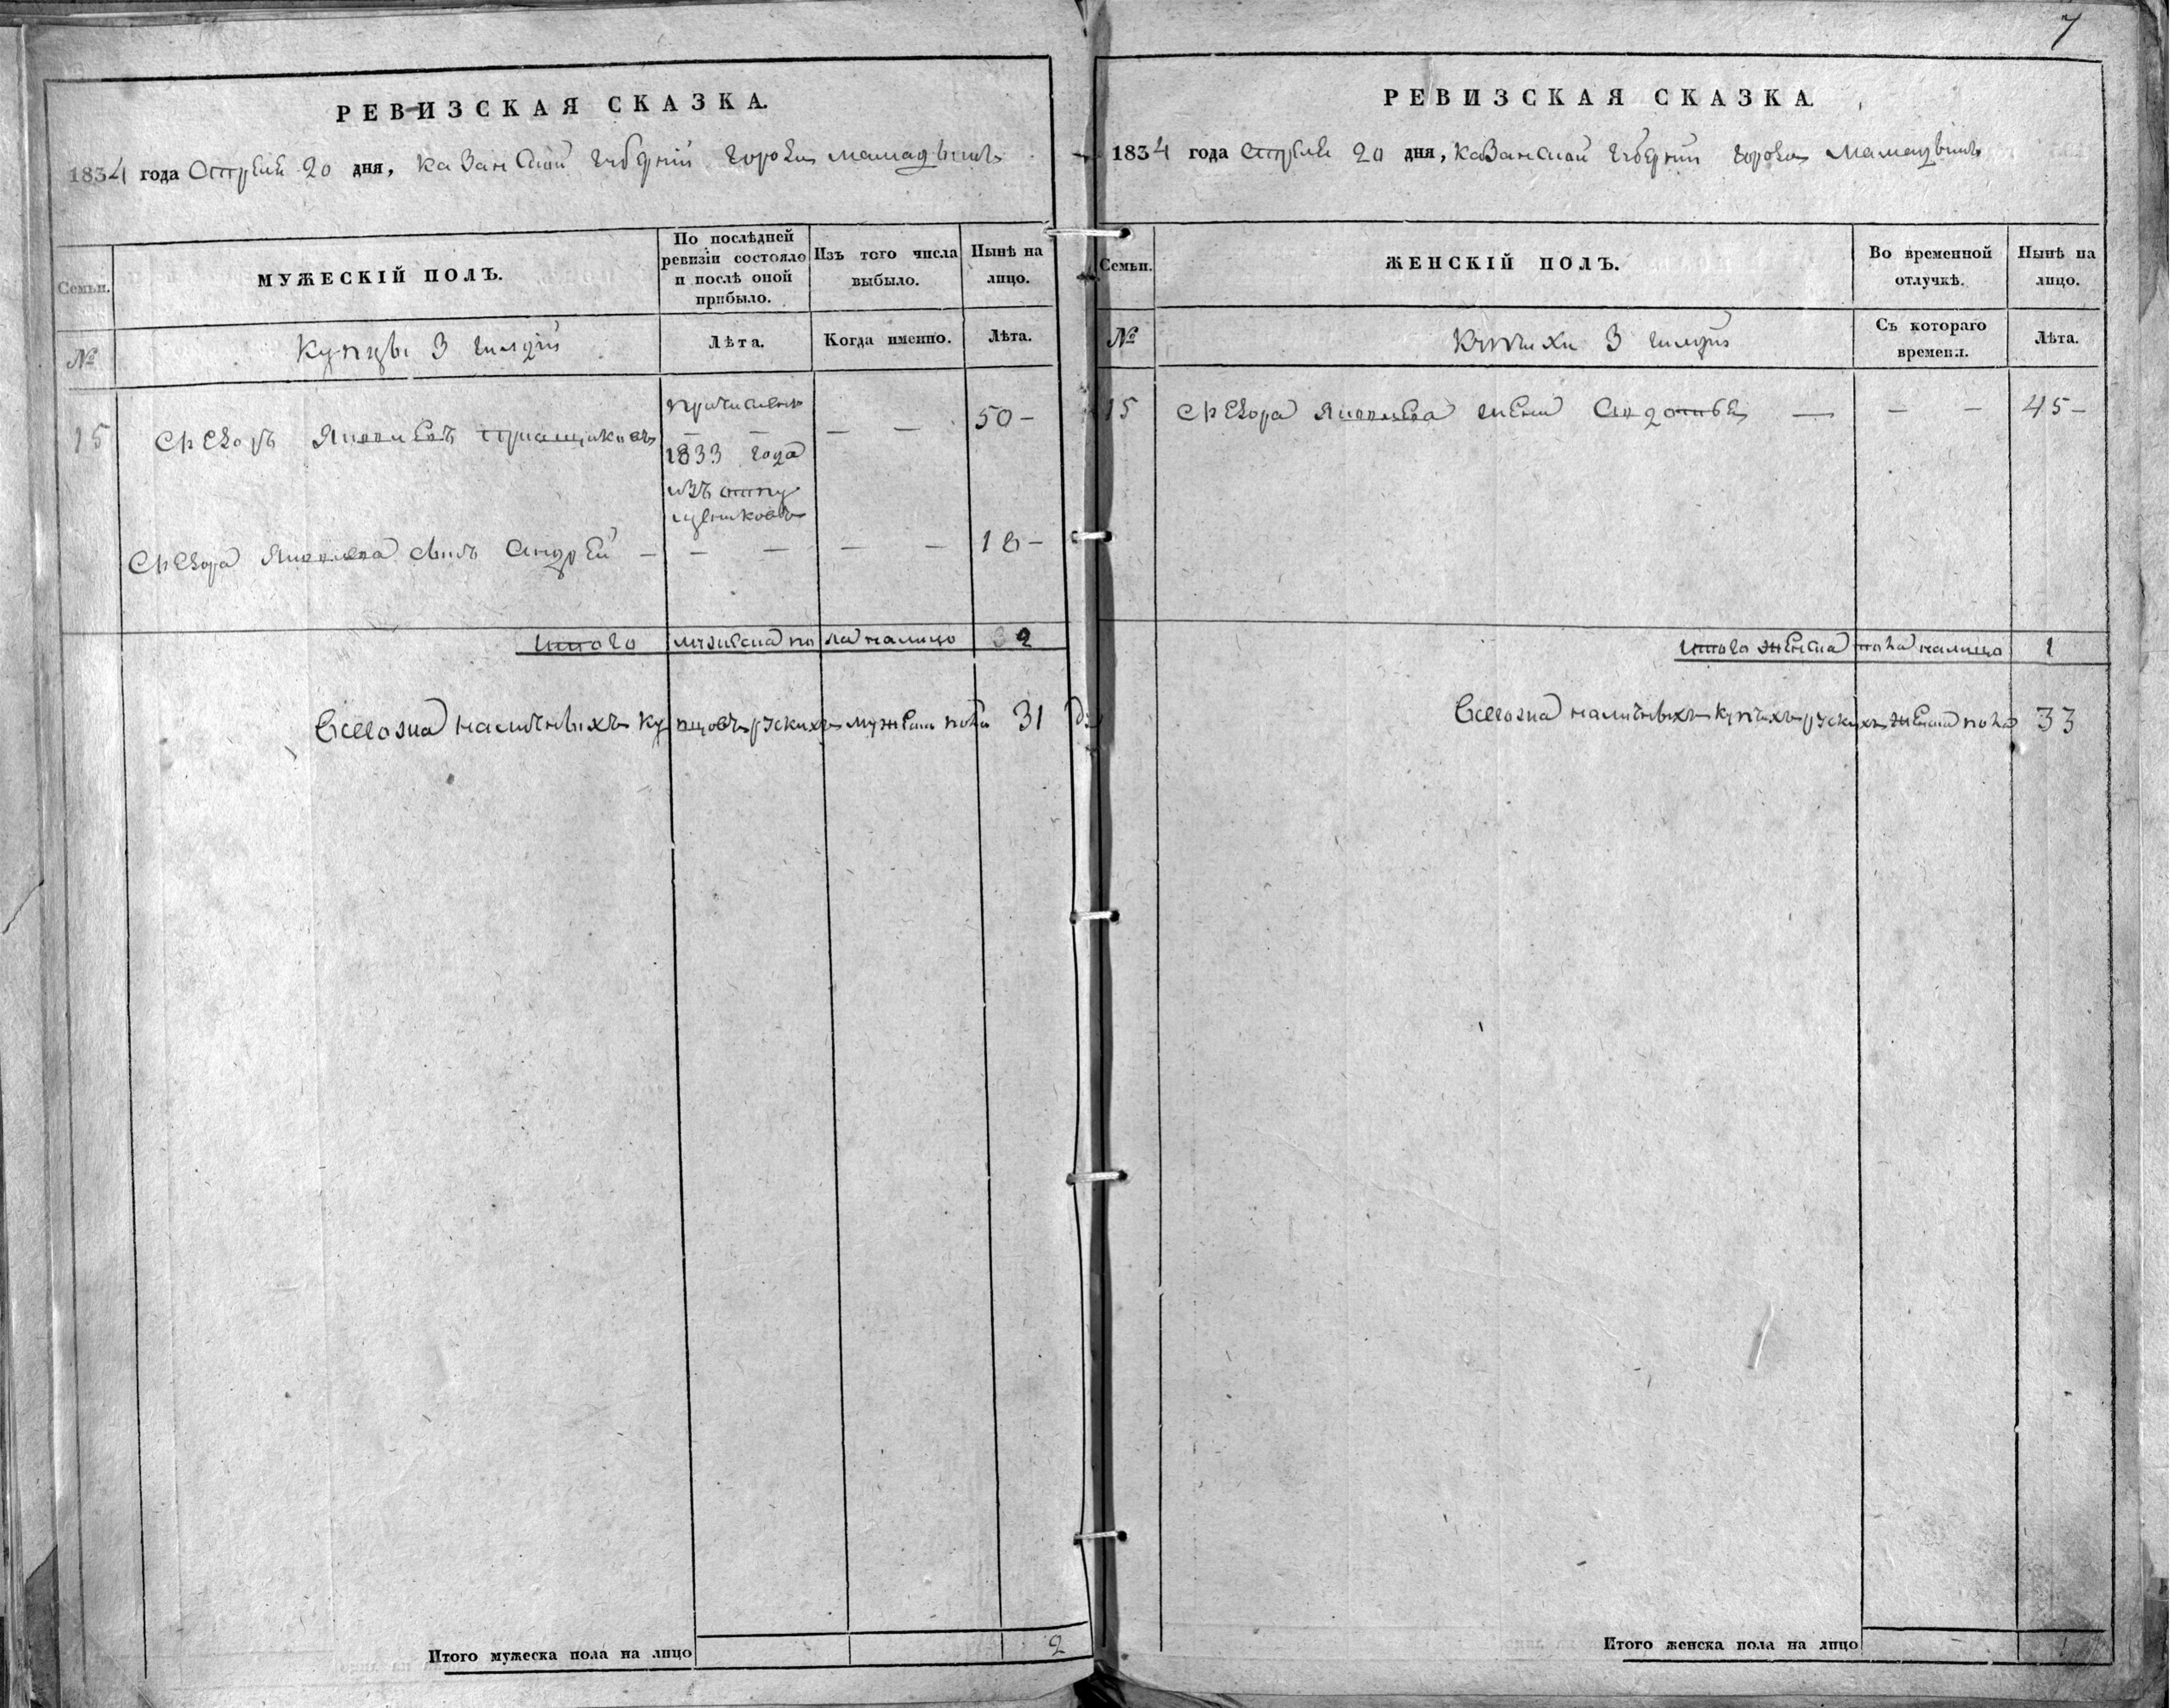 7
РЕВИЗСКАЯ СКАЗКА.
1834 года Апреля 20 дня, Казанской губернии города мамадыша
Семьи.
МУЖЕСКІЙ ПОЛЪ.
По послѣдней ревизіи состояло и послѣ оной прибыло.
Изъ того числа выбыло.
Нынѣ на лицо.
№
Купцы 3 гилдіи
Лѣта.
Когда именно.
Лѣта.
15
Федоръ Яковлевъ
причислен
1833 года
изъ отпу
щенниковъ
— —
50 —
Федора Яковлева сынъ Андрей —
— —
— —
18 —
Итого мужеска пола налицо 2
Всего на наличныхъ купцовъ рускихъ мужска пола 31
Итого мужеска пола на лицо
2
РЕВИЗСКАЯ СКАЗКА.
1834 года Апреля 20 дня, Казанской губернии города Мамадыша
Семьи.
ЖЕНСКІЙ ПОЛЪ.
Во временной отлучкѣ.
Нынѣ на лицо.
№
Купчихи 3 гилдіи
Съ котораго времени.
Лѣта.
15
Федора Яковлева жена —
— —
45 —
Итого женска пола налицо 1
Всего на наличныхъ купчихъ рускихъ женска пола 33
Итого женска пола на лицо
1